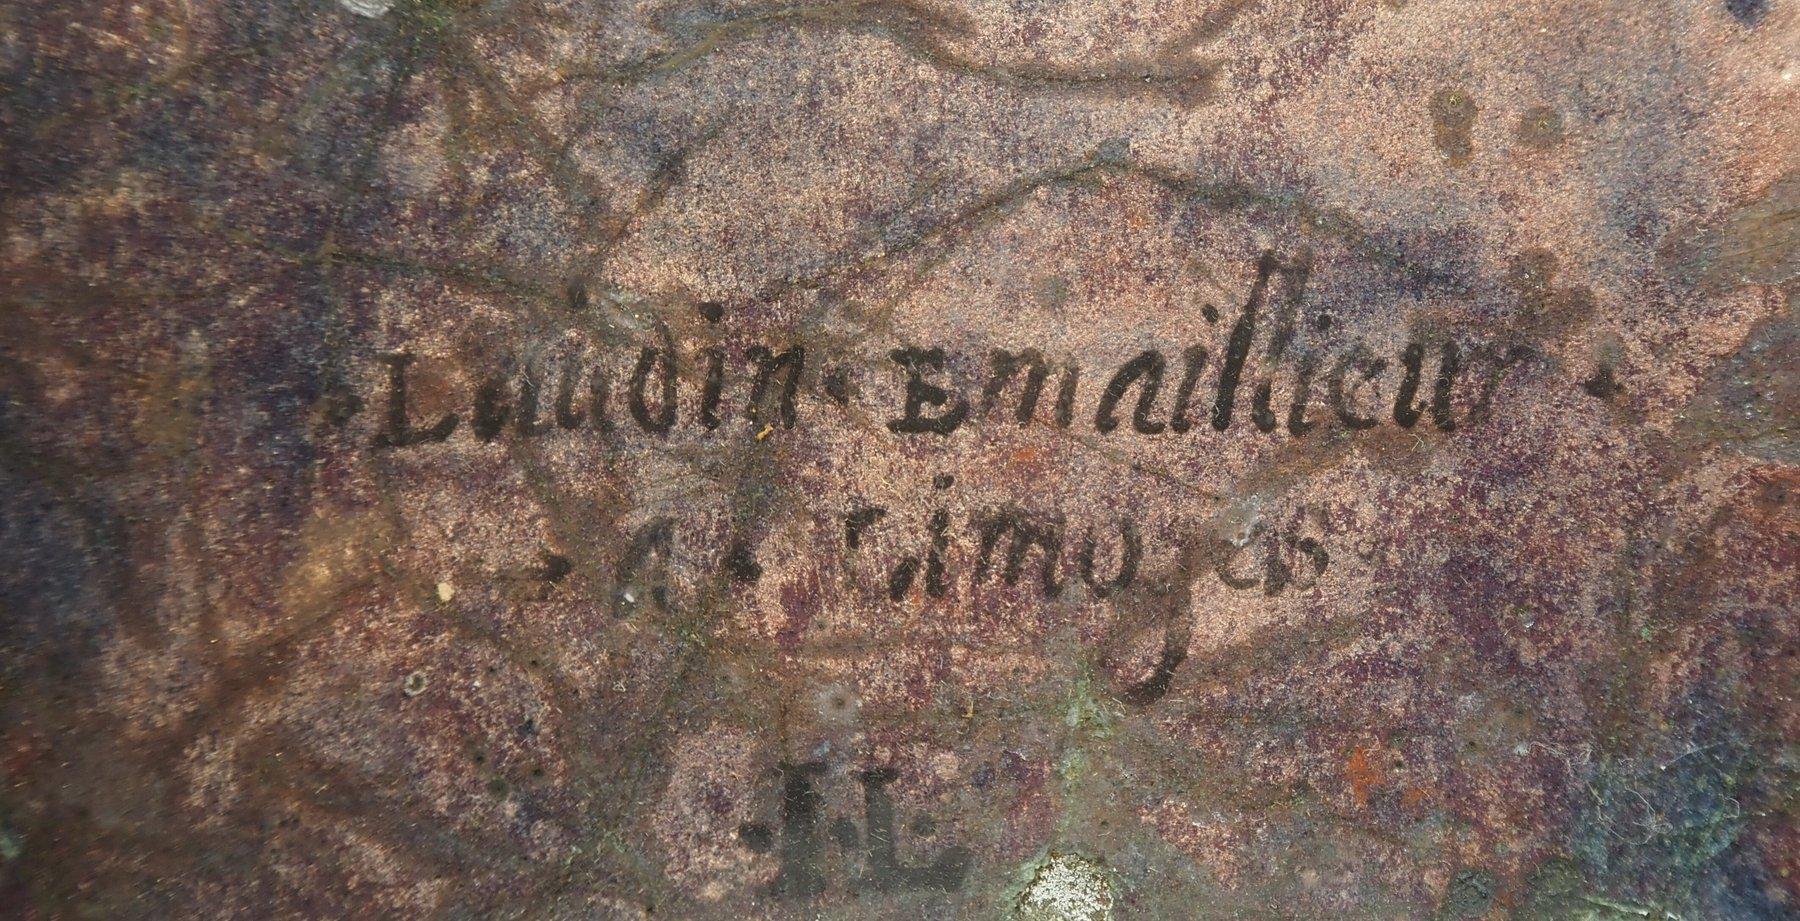 ·Laudin·Emaillieur·
·A·Limoges
·I·L·